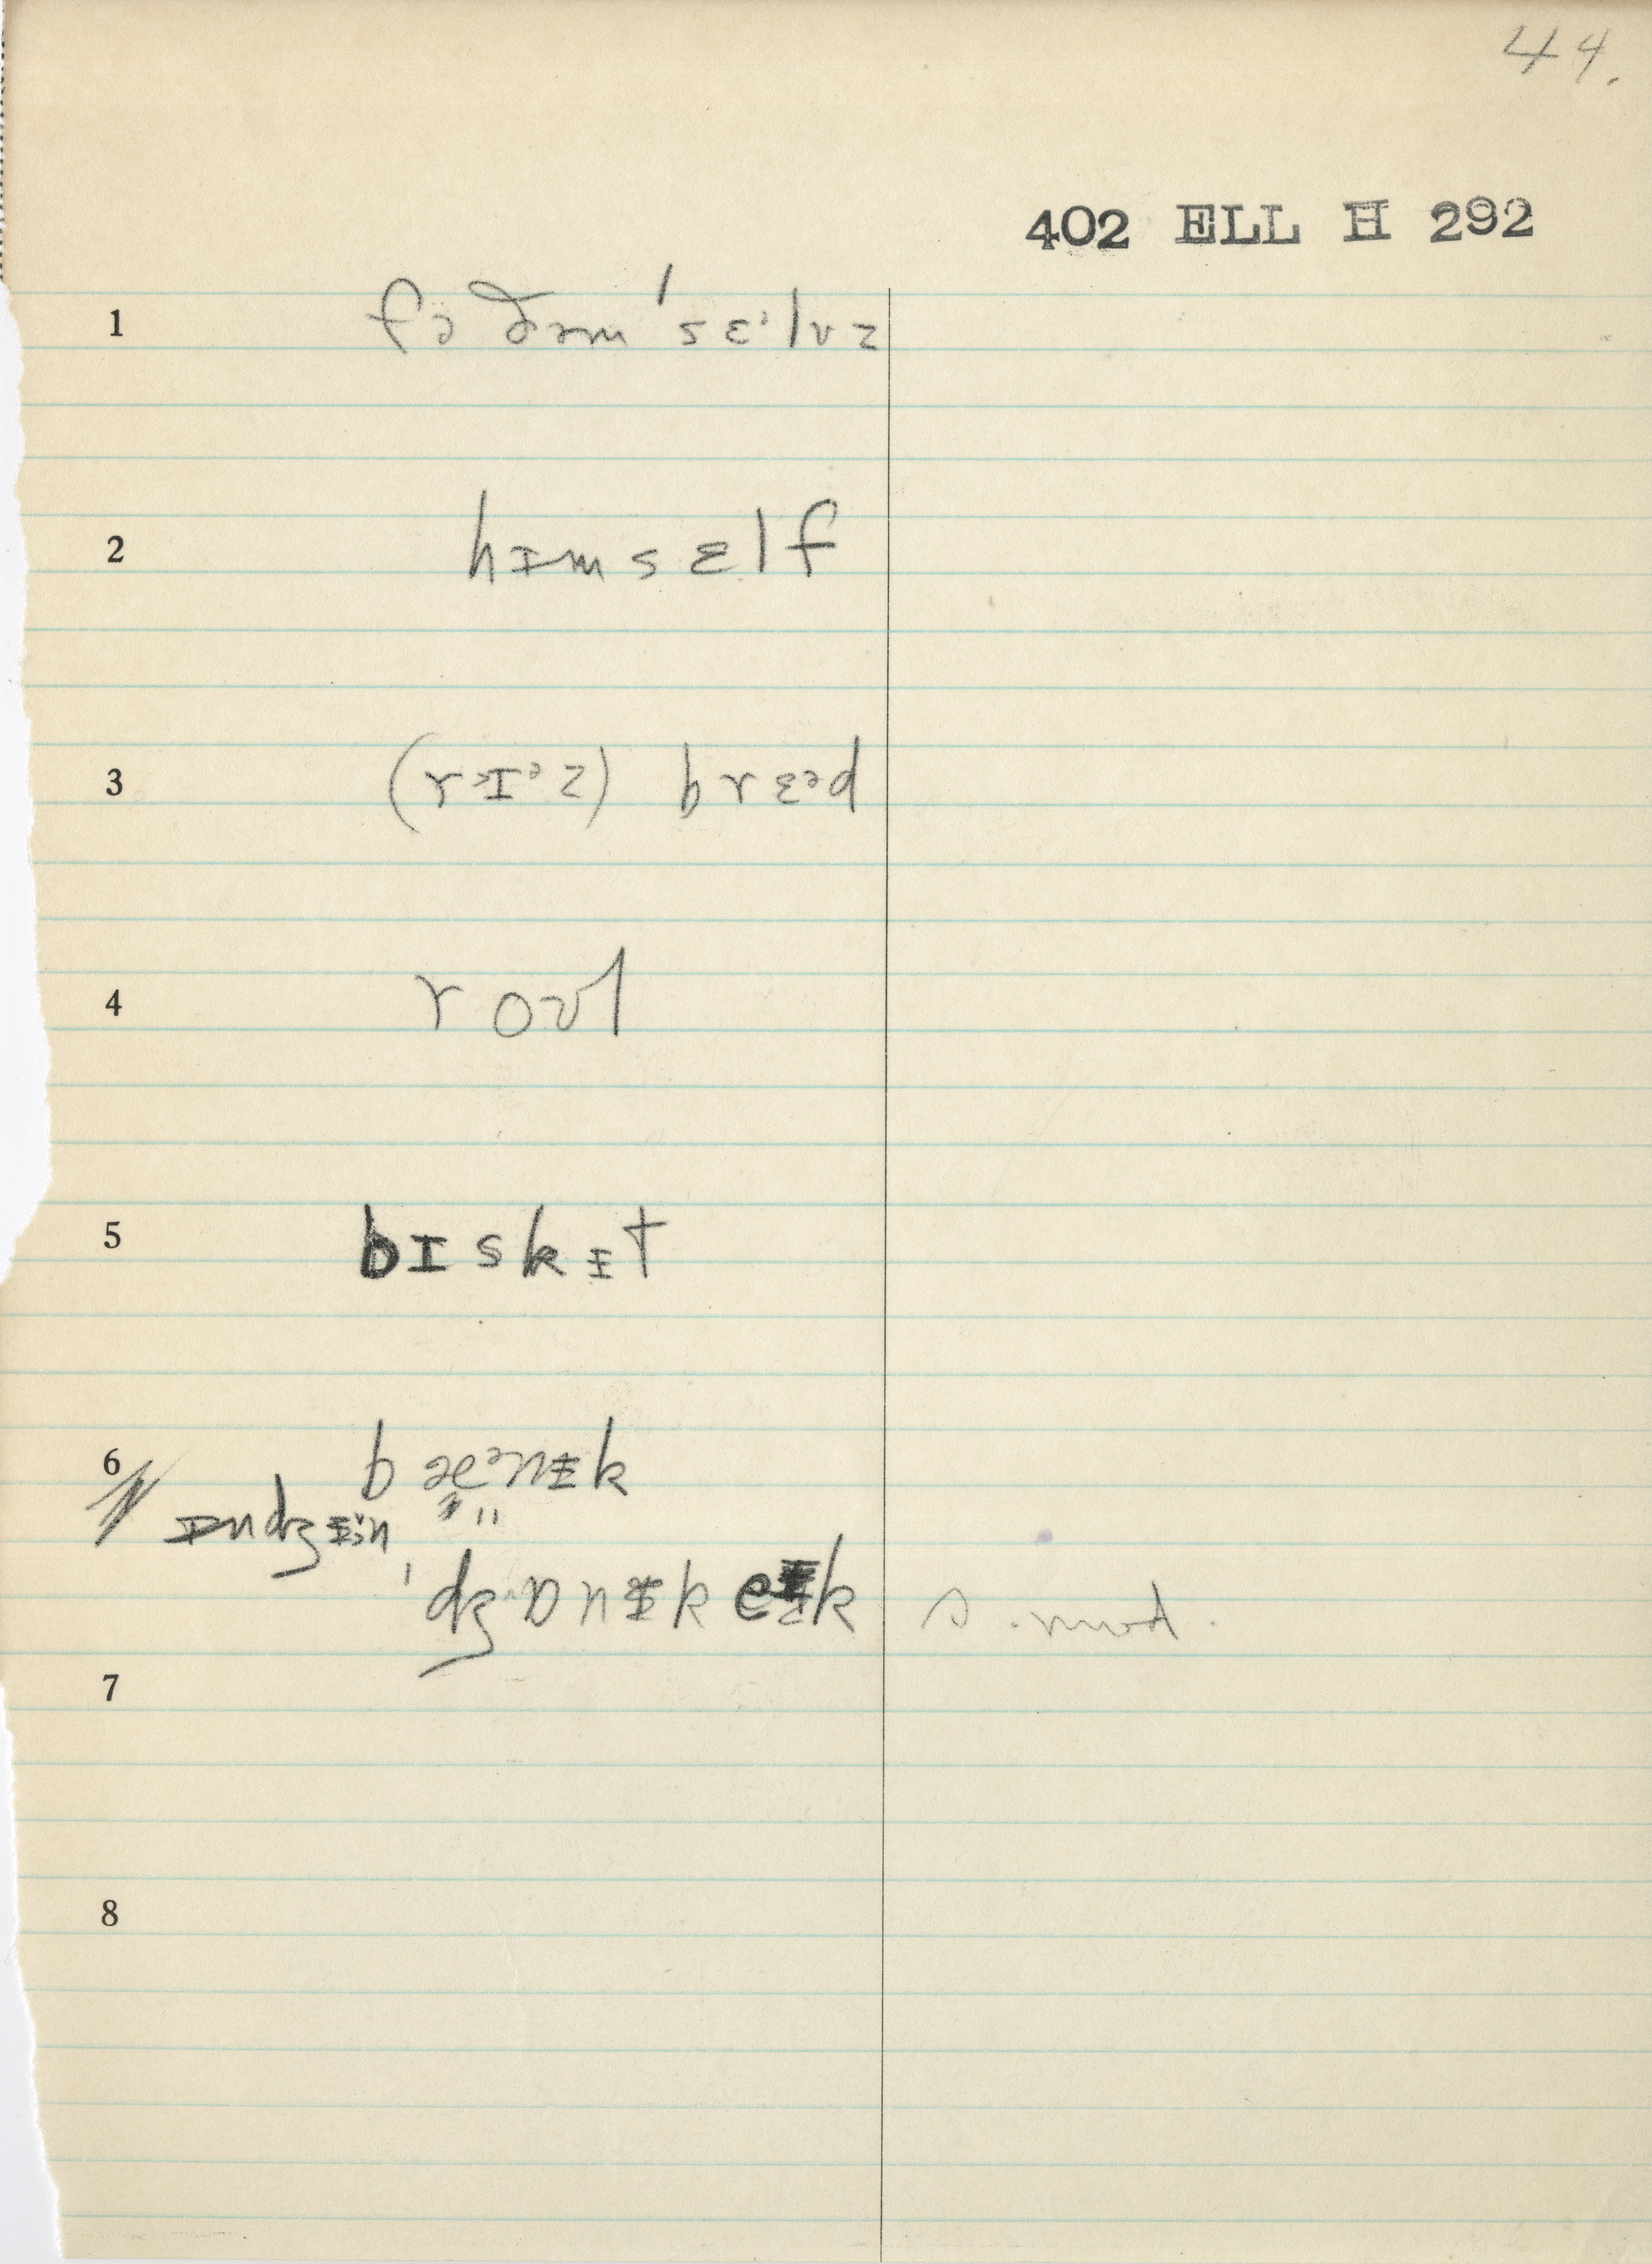 44.
402 ELL H 292
1 fə ðəm ˈsɛᵊlvz
2 hɪmsɛlf
3 (rᵊɪᵊz) brɛᵊd
4 roʊl
5 bɪskᵻt
6 bæᵊnᵻk
ɪndʒᵻn " "
ˈdʒɒnᵻkeɪk s. mod.
7
8